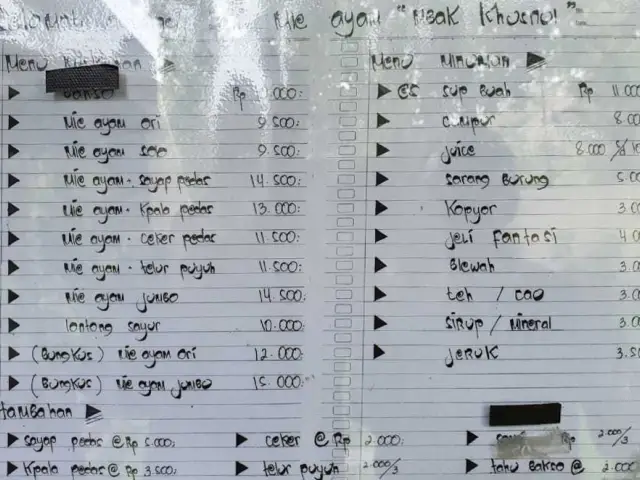 Mie ayam "Mbak Khusnul"
Menu
Rp .000:
Mie ayam ori 9.500:
Mie ayam 9.500:
Mie ayam · sayap pedas 14.500:
Mie ayam · kpala pedas 13.000:
Mie ayam · ceker pedas 11.500:
Mie ayam · telur puyuh 11.500:
Mie ayam jumbo 14.500:
lontong sayur 10.000:
(Bungkus) Mie ayam ori 12.000:
(Bungkus) Mie ayam jumbo 15.000:
Menu Minuman
es sup buah Rp 11.000
campur 8.00
juice 8.000
sarang burung 5.00
Kopyor 3.0
jeli fantasi 4.0
Blewah 3.0
teh / cao 3.00
sirup / Mineral 3.00
jeruk 3.5
tambahan
sayap pedas @ Rp 5.000; ceker @ Rp 2.000; Rp 2.000/3
Kpala pedas @ Rp 3.500; telur puyuh 2.000/3 tahu bakso @ 2.000